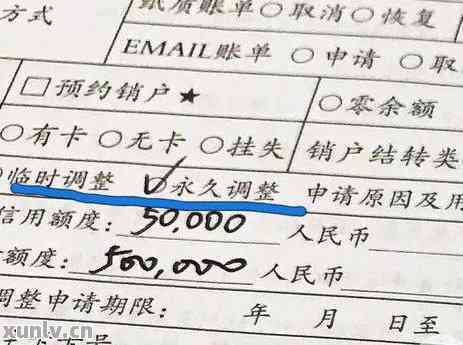 方式 纸质账单○取消○恢复
EMAIL账单○申请○取
□预约销户★ ○零余额
○有卡○无卡○挂失 销户结转类
临时调整 ✓○永久调整 申请原因及用
信用额度：50,000 人民币
额度：500,000 人民币
调整申请期限： 年 月 日至
xunlv.cn